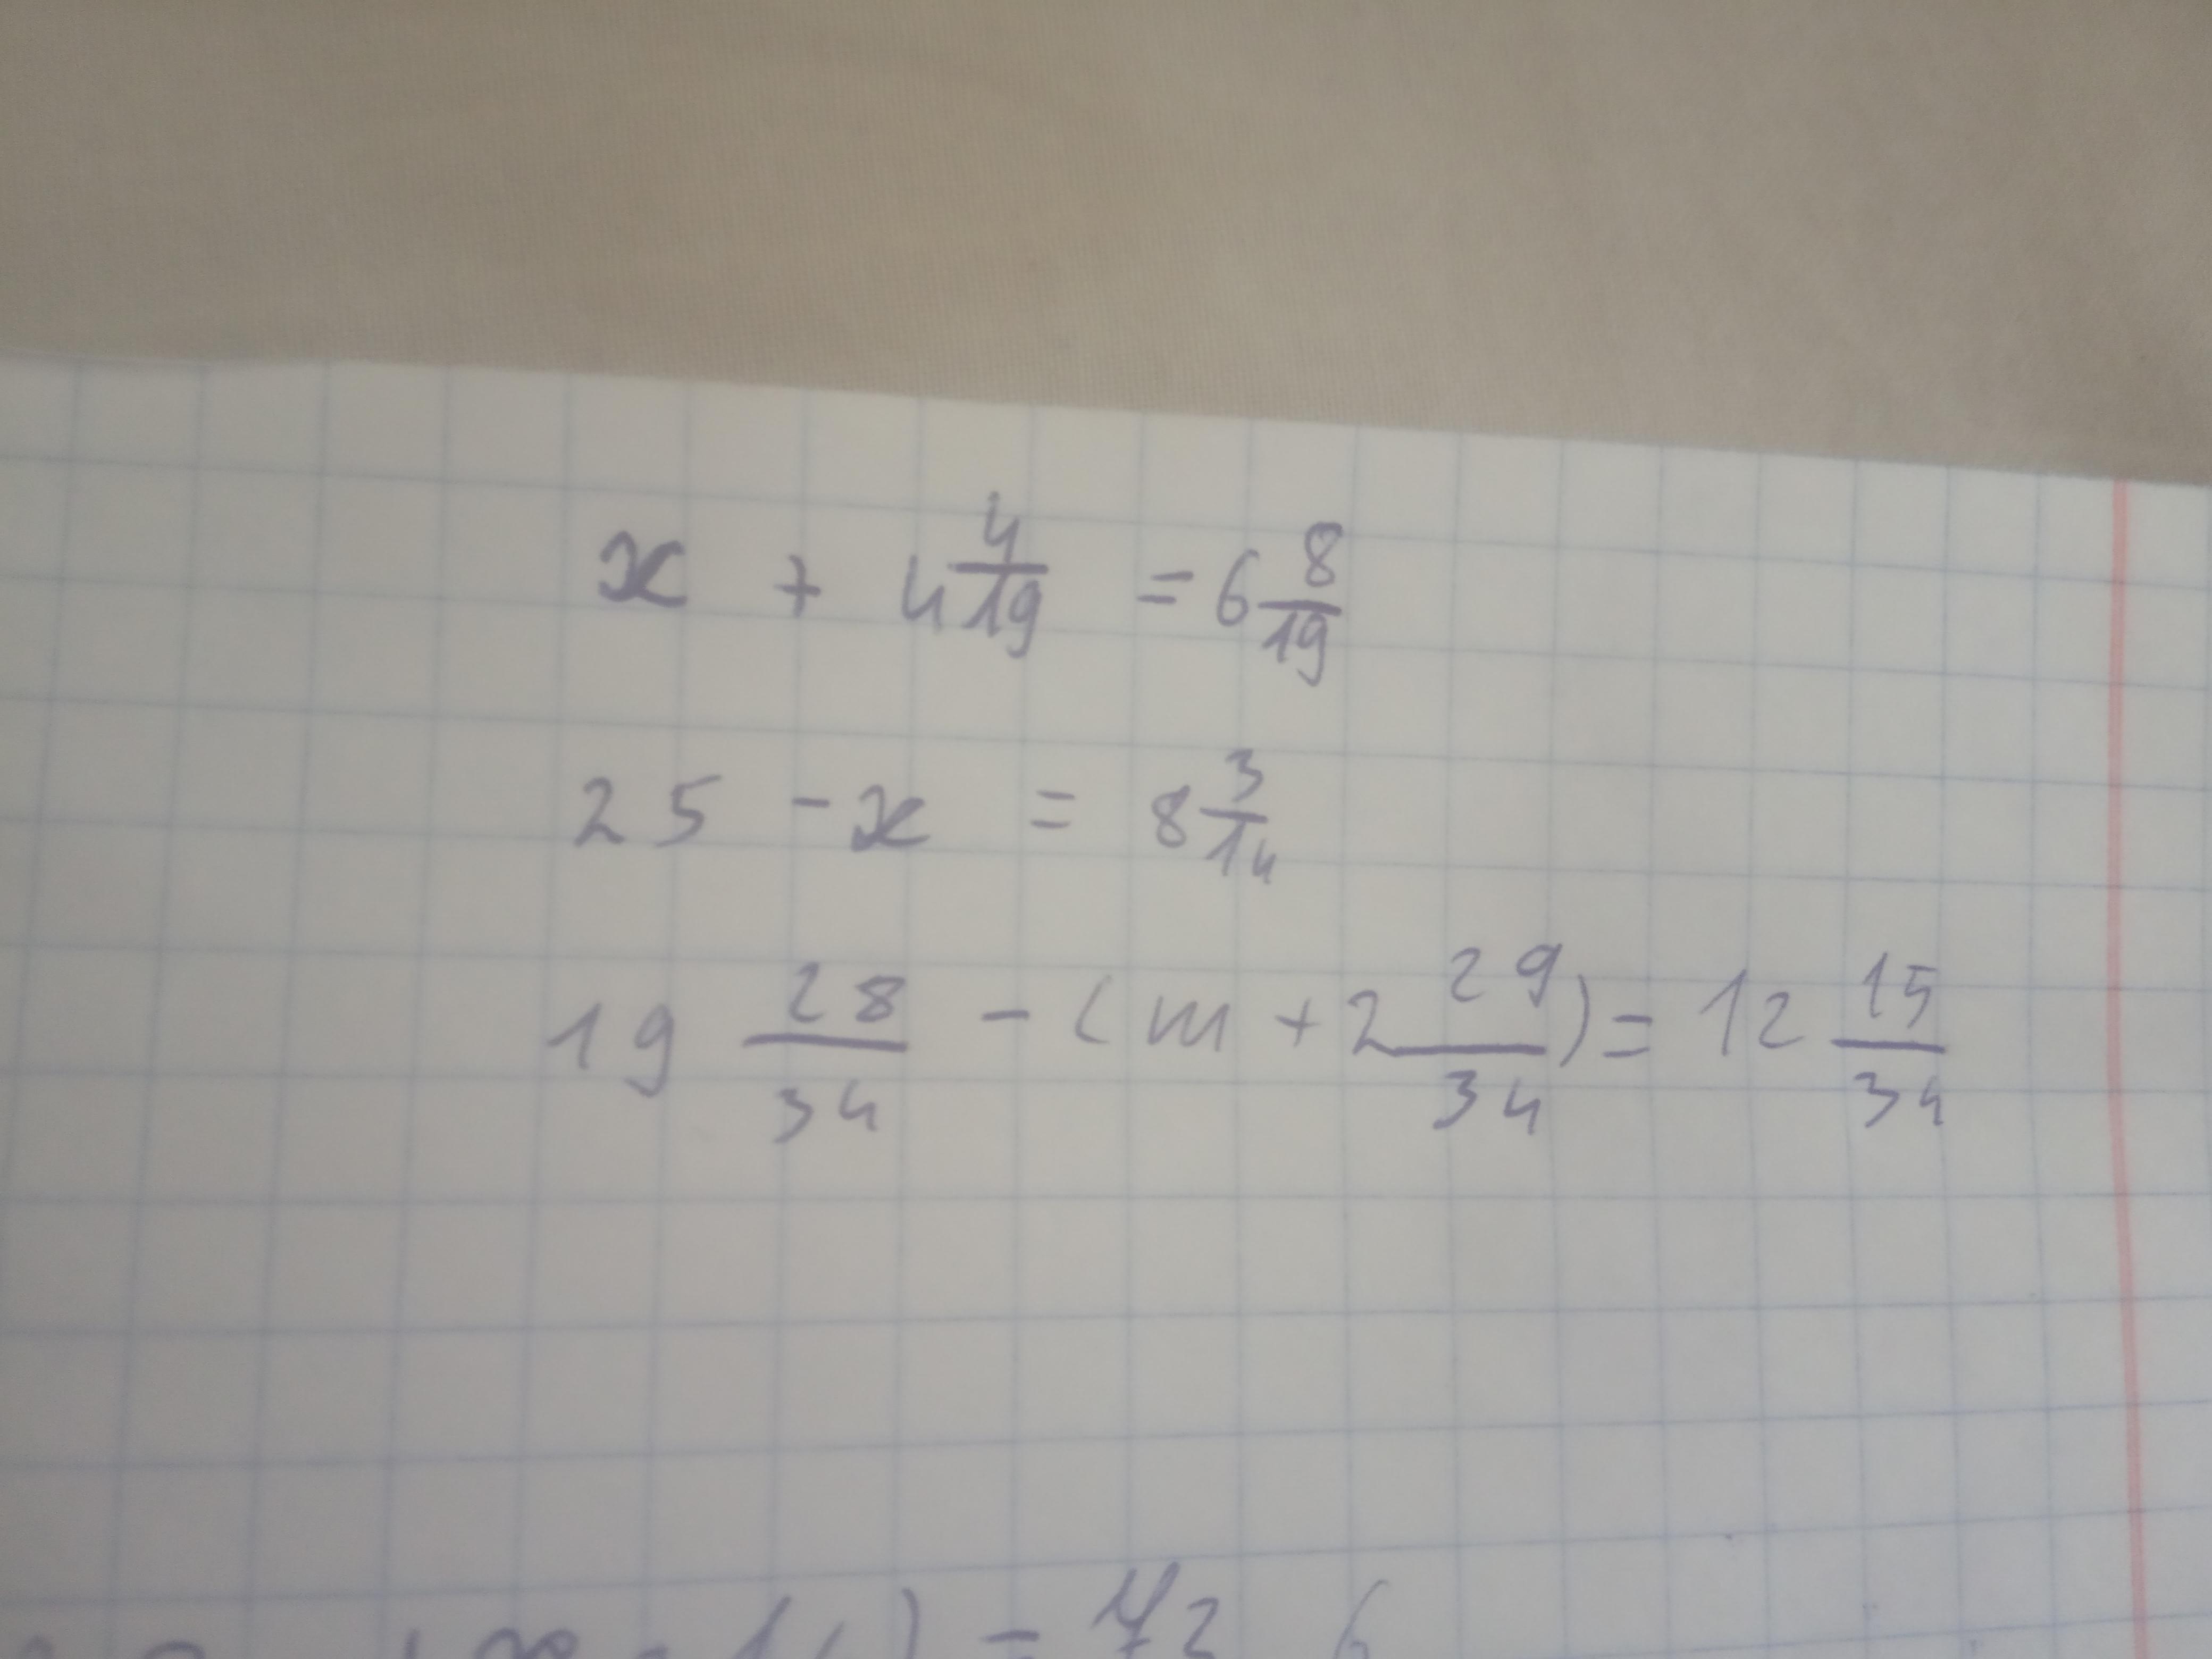 x + 4 4/19 = 6 8/19
25 - x = 8 3/14
19 28/34 - (m + 2 29/34) = 12 15/34